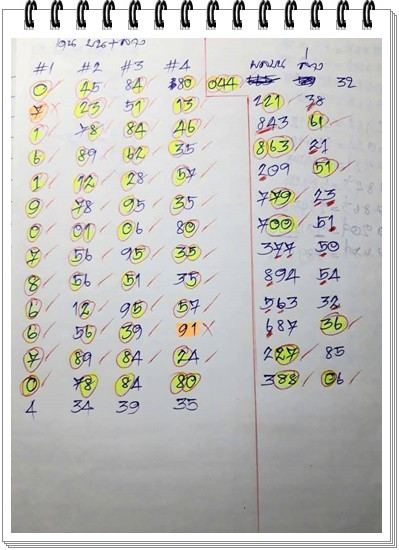 เด่น บน+ล่าง
#1 #2 #3 #4 บน ล่าง
0 45 84 80 044 32
7 23 51 13 221 38
1 78 84 46 843 61
6 89 62 35 863 21
1 12 28 57 209 51
9 78 95 35 779 23
0 01 06 80 700 51
7 56 95 35 377 50
8 56 51 35 894 54
6 12 95 57 563 32
6 56 39 91 687 36
7 89 84 24 227 85
0 78 84 80 388 06
4 34 39 35